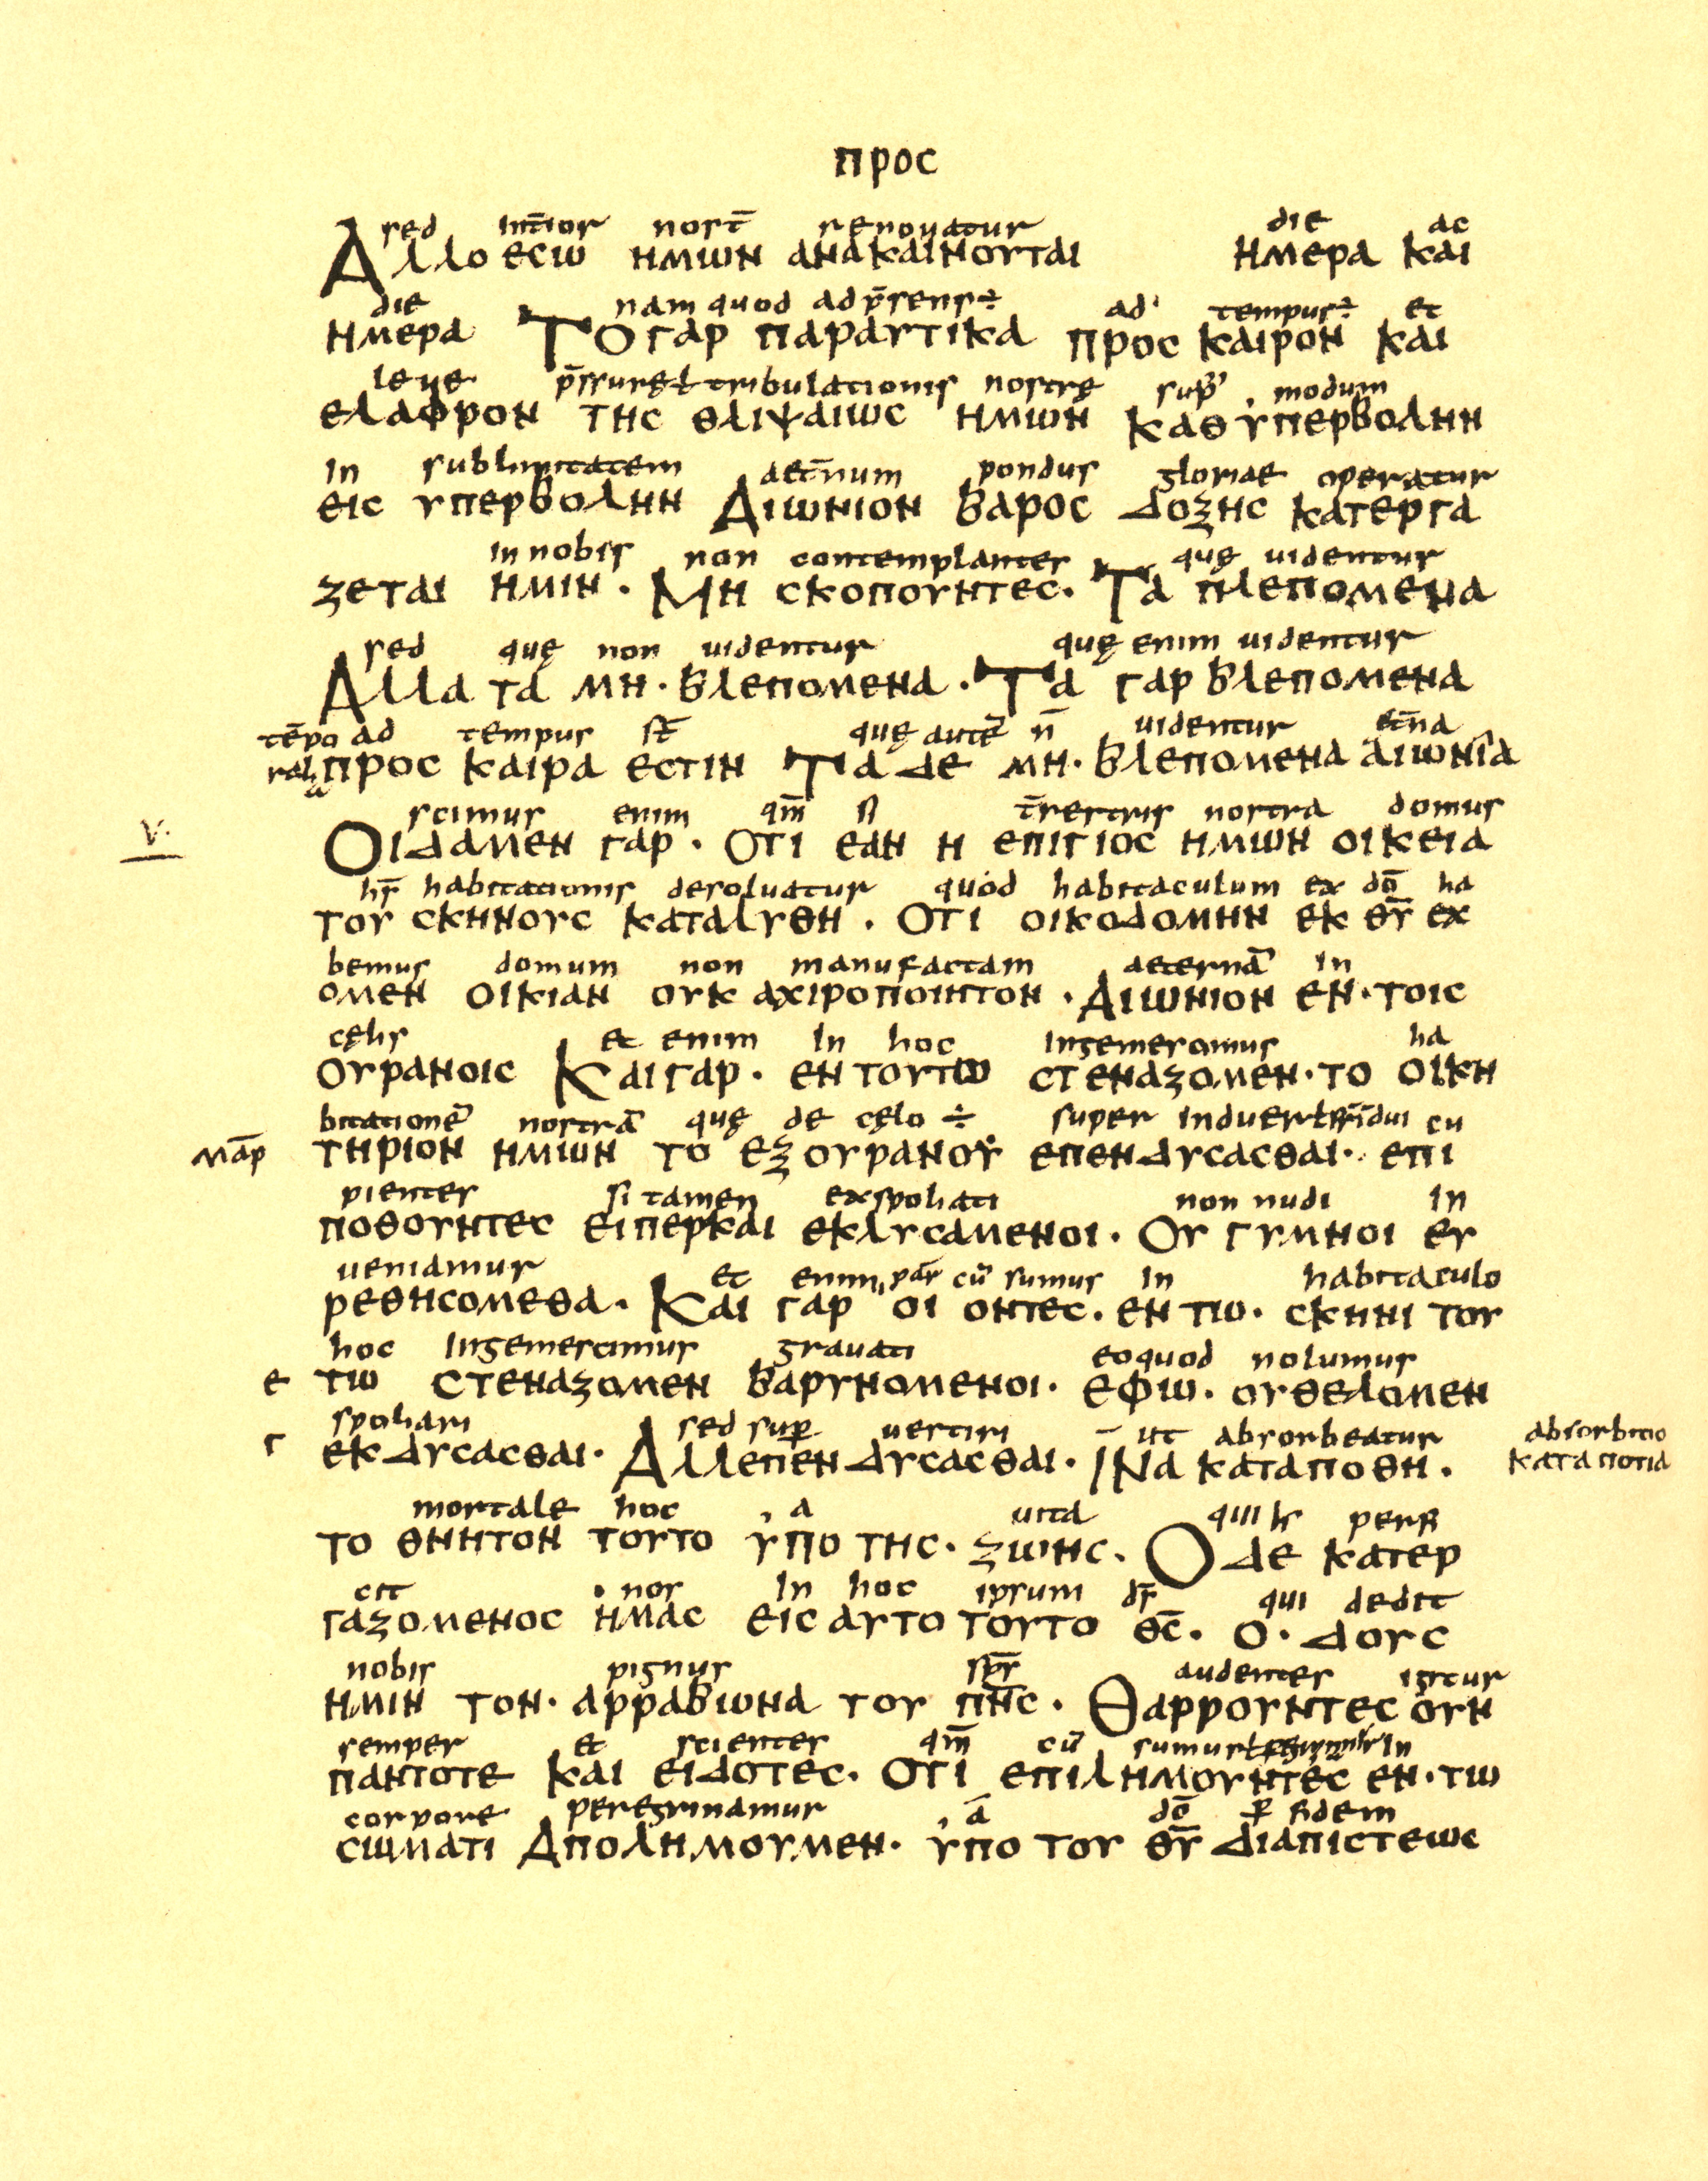 προс
sed int̄ior nosт̄ renouatur die ac
Αλλο εсω ημων ανακαινουται ημερα και
die nam quod ad p̄sens÷ ad tempus÷ et
ημερα Το γαρ παραυτικα προс καιρον και
leue p̄ssurę ł tribulationis nostrę sup̄ modum
ελαφρον τηс θλιψαιωс ημων καθυπερβολην
in sublimitatem aet̄num pondus gloriae operatur
ειс υπερβολην Αιωνιον βαροс δοξηс κατεργα
in nobis non contemplanter quę uidentur
ζεται ημιν · Μη сκοπουντεс · Τα πλεπομενα
sed quę non uidentur quę enim uidentur
Αλλα τα μη · βλεπομενα · Τα γαρ βλεπομενα
tēpo ad tempus sт̄ quę autē n̄ uidentur et̄na
ralia προс καιρα εсτιν Τα δε μη · βλεπομενα αιωνια
V. scimus enim qm̄ si t̄restris nostra domus
Οιδαμεν γαρ · οτι εαν η επιγιοс ημων οικεια
hs̄ habitationis desoluatur quod habitaculum ex dō ha
του сκηνουс καταλυθη · οτι οικοδομην εκ θῡ εχ
bemus domum non manufactam aeternā in
ομεν οικιαν ουκ αχιροποιητον · Αιωνιον εν · τοιс
cęlis et enim in hoc ingemescimus ha
ουρανοιс Και γαρ · εν τουτω сτεναζομεν · το οικη
bitationē nostrā quę de cęlo ÷ super induer cu
μāρ τηριον ημων το εξ ουρανου επενδυсαсθαι · επι
pienter si tamen exspoliati non nudi in
ποθουντεс ειπερ και εκλυсαμενοι · Ου γυμνοι ευ
ueniamur et enim par cū sumus in habitaculo
ρεθηсομεθα · Και γαρ οι οντεс · εν τω · сκηνι του
hoc ingemescimus grauati eoquod nolumus
ε τω сτεναζομεν βαρυνομενοι · εφω · ου θελομεν
spoliari sed sup uestiri ut absorbeatur absorbitio
г εκδυсαсθαι · Αλλ επενδυсαсθαι · ινα καταποθη · καταποτια
mortale hoc a uita qui hs perfi
το θνητον τουτο υπο τηс · ζωηс · Ο δε κατερ
cit nos in hoc ipsum ds̄ qui dedit
γαζομενοс ημαс ειс αυτο τουτο θс̄ · ο · δουс
nobis pignus sp̄s audenter igitur
ημιν τον · αρραβωνα του πн̄с · Θαρρουντεс ουν
semper et scienter qm̄ cū sumus in
παντοτε και ειδοτεс · οτι επιλημουντεс εν · τω
corpore peregrinamur ā dō ꝑ fidem
сωματι Απολημουμεν · υπο του θῡ διαπιсτεωс